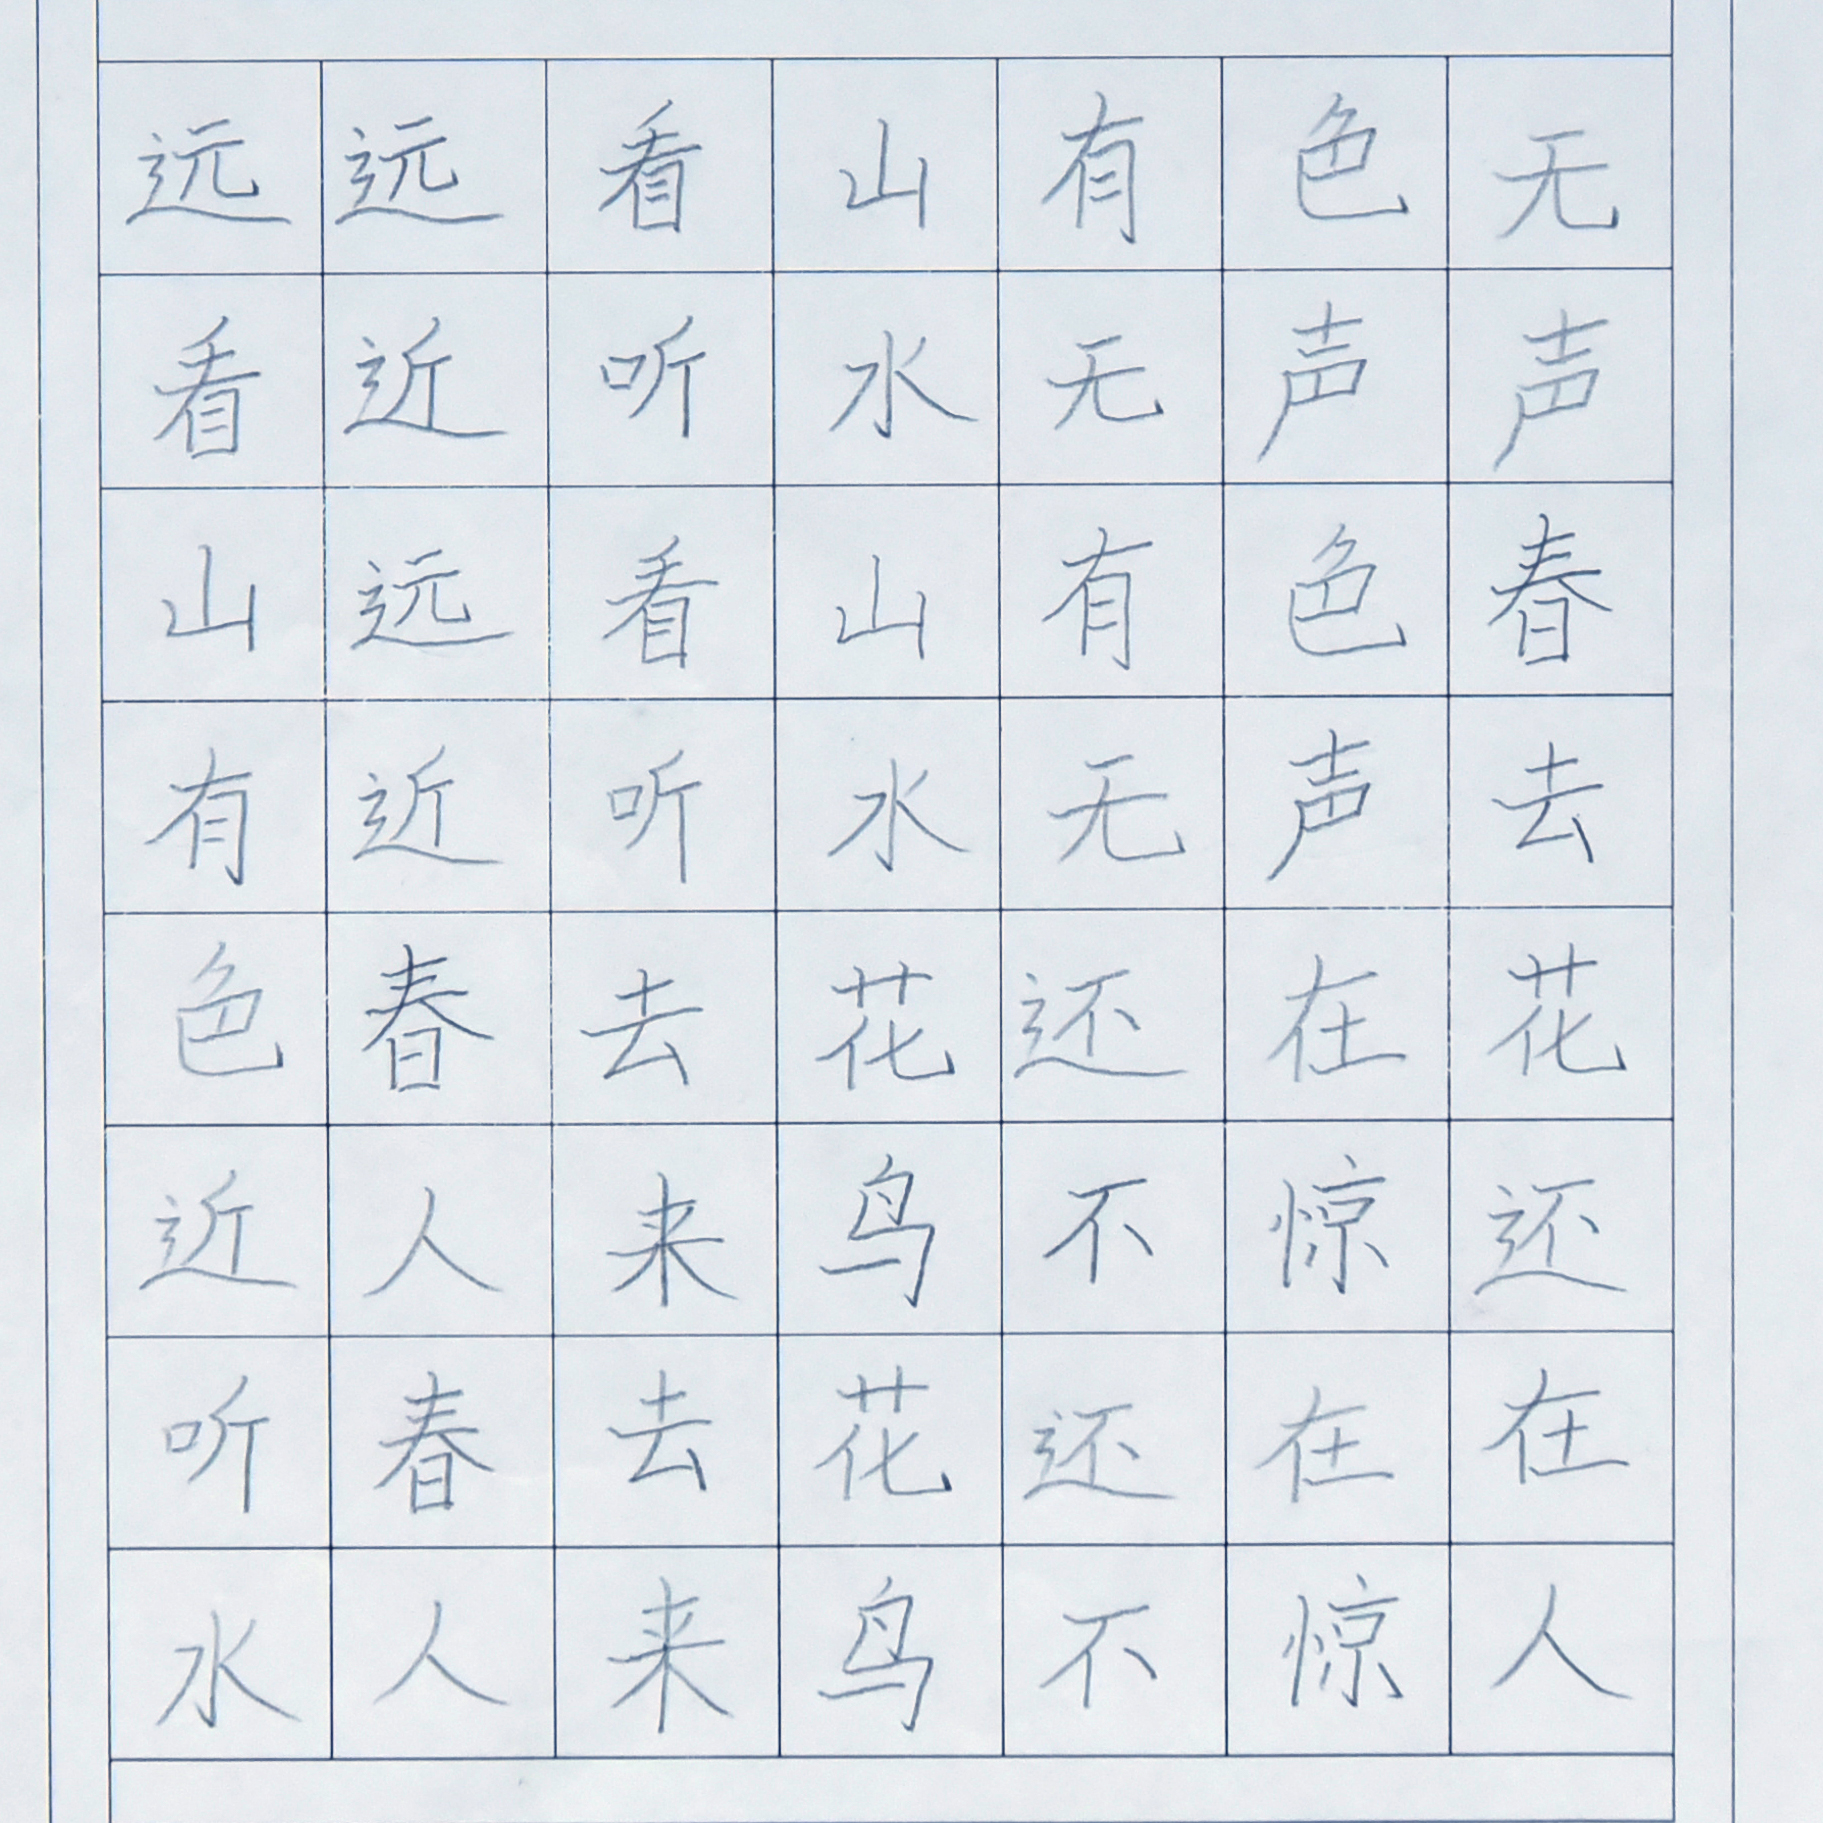 远远看山有色无
看近听水无声声
山远看山有色春
有近听水无声去
色春去花还在花
近人来鸟不惊还
听春去花还在在
水人来鸟不惊人